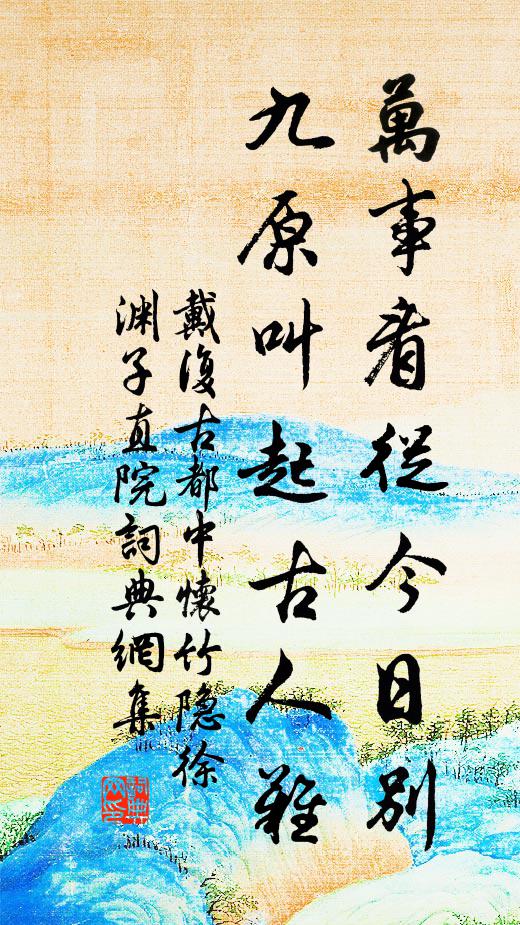 萬事看從今日別
九原叫起古人難
戴復古都中懷竹隐徐
渊子直院詞典網集